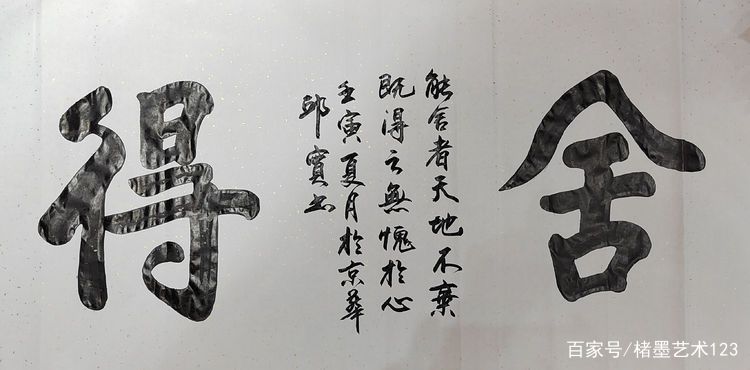 舍
能舍者天地不棄
既得之無愧於心
壬寅夏月於京華
邱寶書
得
百家号/楮墨艺术123